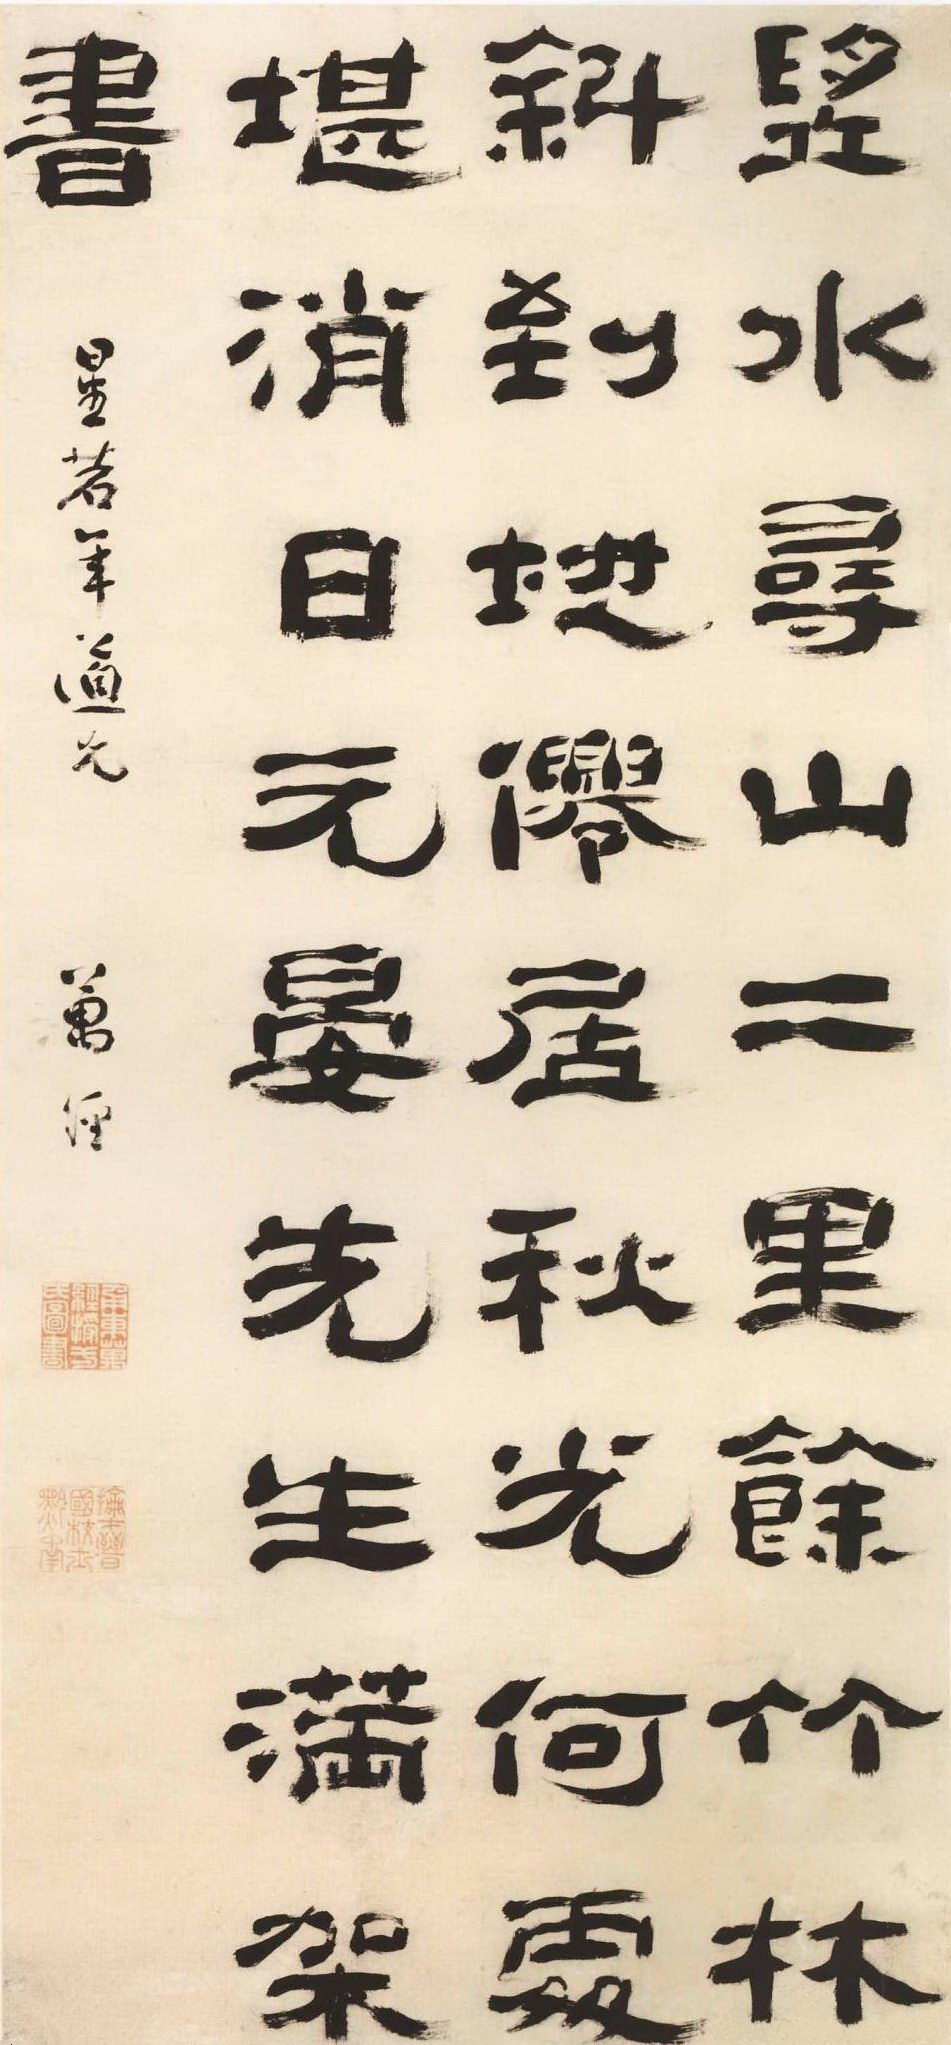 竪水尋山二里餘竹林
斜到地僊居秋光何處
堪消日元晏先生滿架
書
星若年道兄 萬經